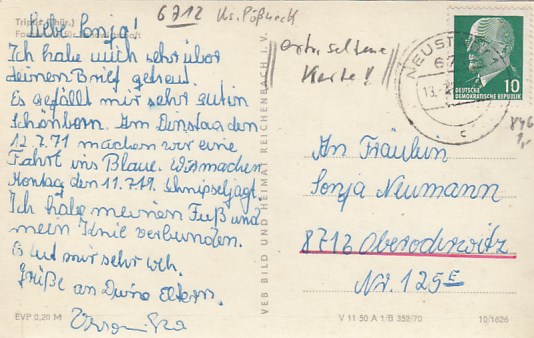 6712 Ks. Pößneck
Triptis (Thür.)
Liebe Sonja!
Ich habe mich sehr über
deinen Brief gefreut.
Es gefällt mir sehr gut in
Schönborn. Am Dienstag den
12.7.71 machen wir eine
Fahrt ins Blaue. Wir machen
Montag den 11.7.71. Schnipseljagt.
Ich habe meinen Fuß und
mein Knie verbunden.
Es tut mir sehr weh.
Grüße an Deine Eltern.
Veronika
EVP 0,20 M
VEB BILD UND HEIMAT REICHENBACH I. V.
extr. seltene
Karte!
NEUST
67
13.
c
10
DEUTSCHE
DEMOKRATISCHE REPUBLIK
An Fräulein
Sonja Neumann
8716 Oberoderwitz
Nr. 125E
V 11 50 A 1/B 352/70
10/1626